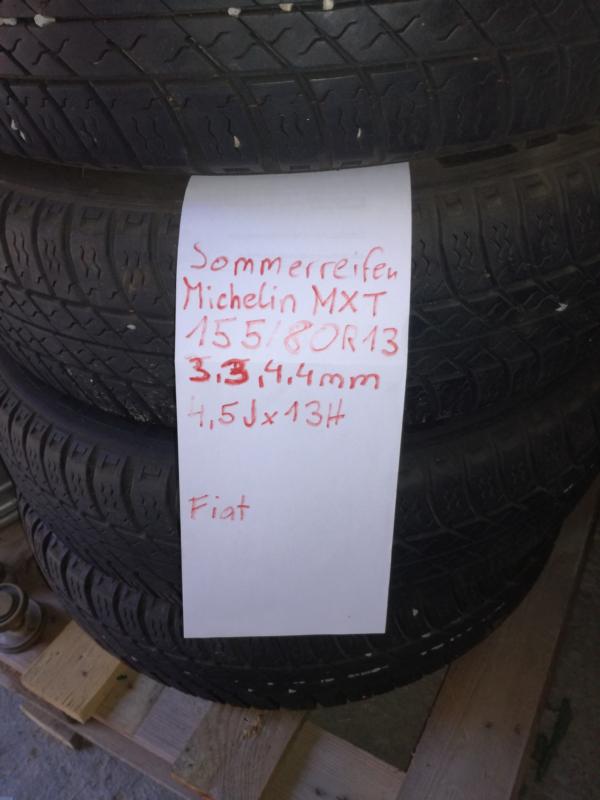 Sommerreifen
Michelin MXT
155/80R13
3,3,4,4mm
4,5Jx13H
Fiat